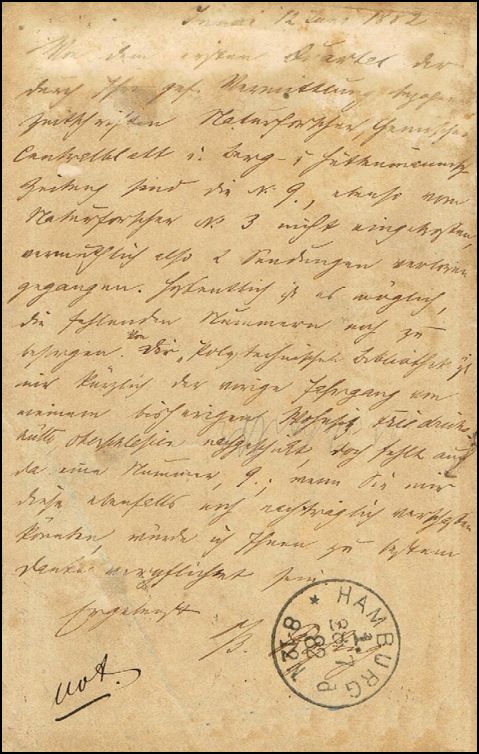 12 Juni 1882
Von dem ersten Quartal der
durch Ihre gef. Vermittlung
Zeitschriften Naturforscher, Chemisches
Centralblatt u. Berg- u. Hüttenmännische
Zeitung sind die N. 9, ebenso vom
Naturforscher N. 3 nicht eingetroffen,
vermuthlich also 2 Sendungen verloren
gegangen. Hoffentlich ist es möglich,
die fehlenden Nummern noch zu
besorgen. Von Der „Polytechnischen Bibliothek" ist
mir kürzlich der vorige Jahrgang von
meinem bisherigen Wohnsitz, Friedrichs-
hütte Oberschlesien nachgeschickt, doch fehlt auch
da eine Nummer, 9.; wenn Sie mir
diese ebenfalls noch nachträglich verschaffen
könnten, würde ich Ihnen zu bestem
Danke verpflichtet sein
Ergebenst
B.
HAMBURG
1.
7
82
8-12 N
not.